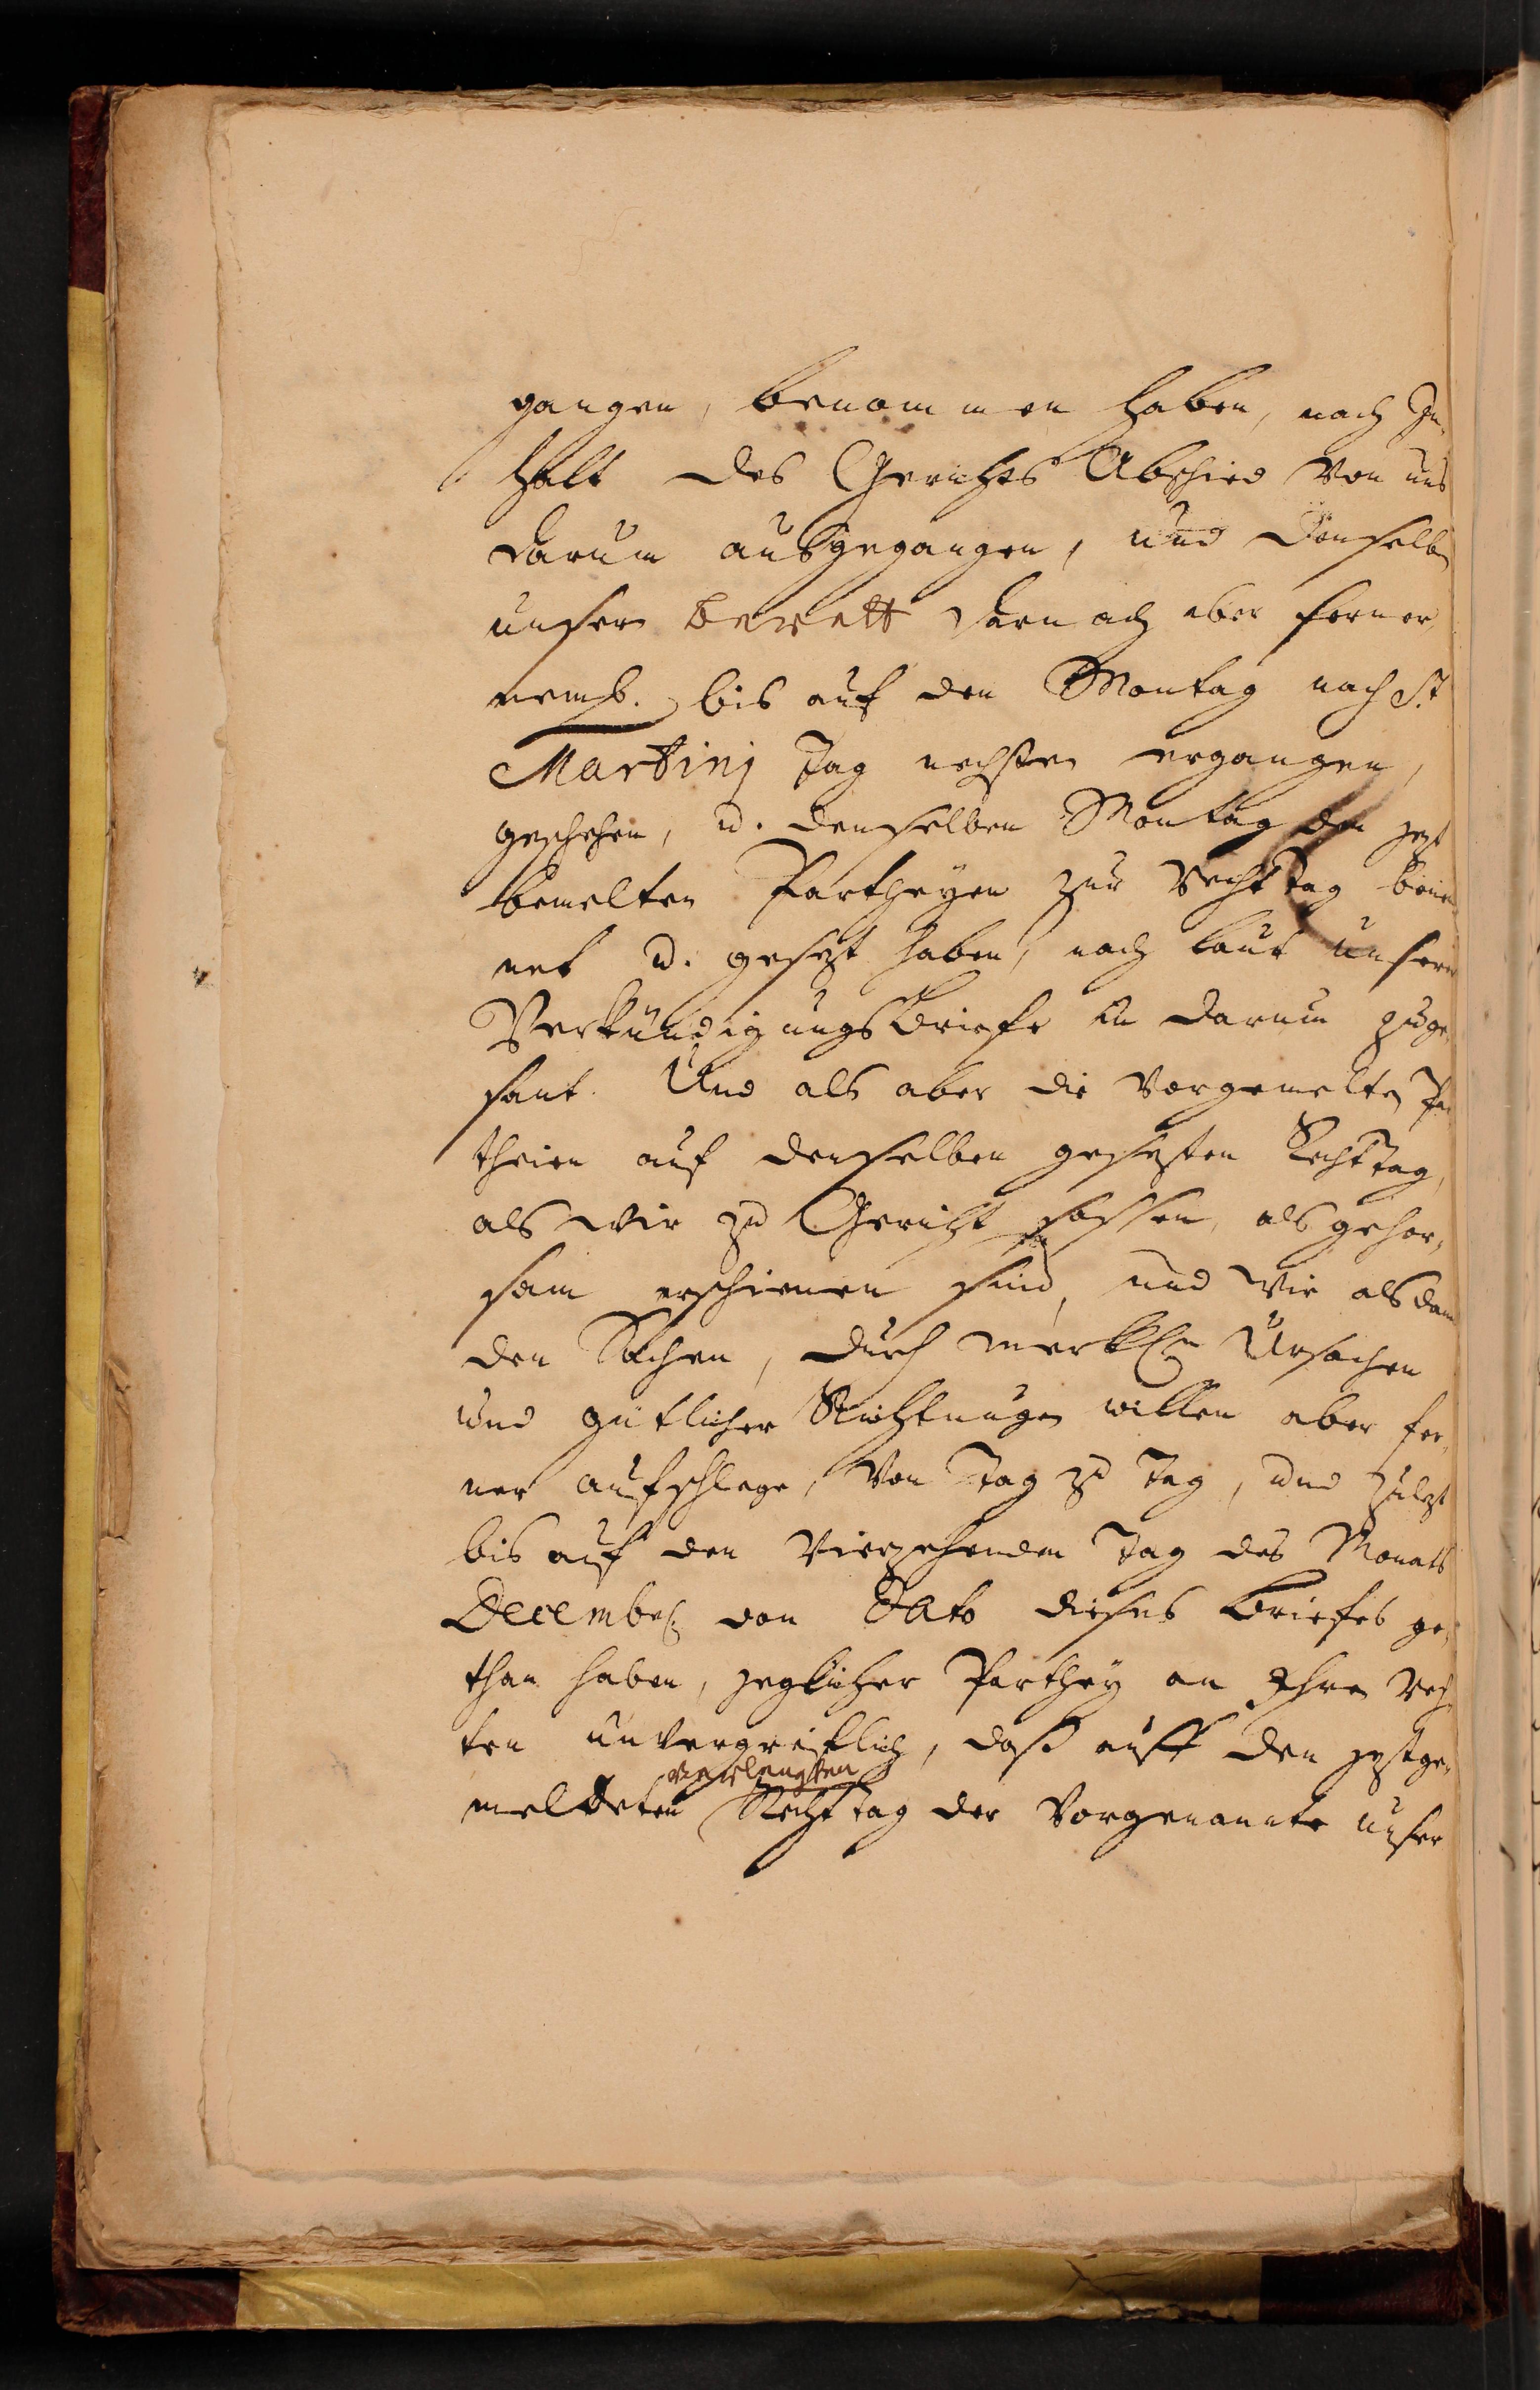 gangen, benommen haben, nach In-
halt des Gerichts Abschied von uns
darum ausgegangen, und denselben
unsern berett darnach aber ferner
nemb. bis auf den Montag nach St
Martinj Tag nechsten ergangen,
geschehen, u. denselben Montag den jezt
bemelten Partheyen zur Rechttag benen
net u. gesezt haben, nach laut unsere
Verkündigungsbriefe in darum zuge-
sant. Und als aber die vorgemelten Par
theien auf denselben gesezten Rechttag,
als wir zu Gericht sassen, als gehor-
sam erschienen sind, und wir als dann
den Sachen, durch merkl. Ursachen
und gütlicher Richtungen willen aber fer-
ner aufschlege, von Tag zu Tag, und zulezt
bis auf den vierzehenden Tag des Monats
Decembr. von Dato dieses briefes ge-
than haben, jeglicher Parthey an Ihren Rech
ten unvergriflich, daß auff den jeztge-
verlengten
meldeten Rechttag der vorgenannte unser